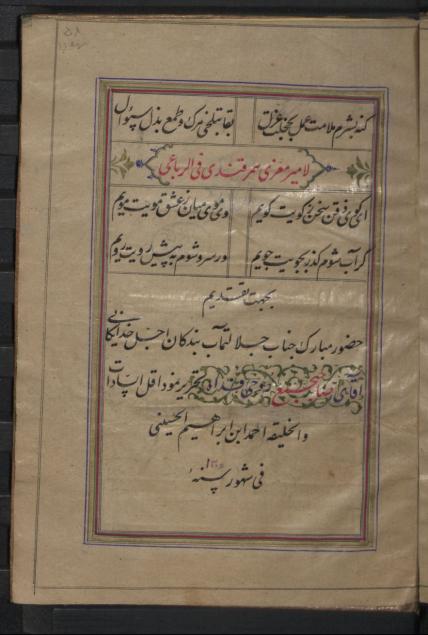 کند بشرم ملامت عمل بخجلت عزل بقا بتلخی مرک و طمع بذل سؤال
لامیر معزی سمرقندی فی الرباعی
ای کوی ذقن سخن ز کویت کویم وی موی میان ز عشق مویت مویم
گر آب شوم گذر بجویت جویم ور سرو شوم به پیش رویت رویم
بجهت تقدیم
حضور مبارک جناب جلالتمآب بندکان اجل خدایکانی
آقای تحریر نمود اقل السادات
والخلیقه احمد ابن ابراهیم الحسینی
فی شهور سنهٔ